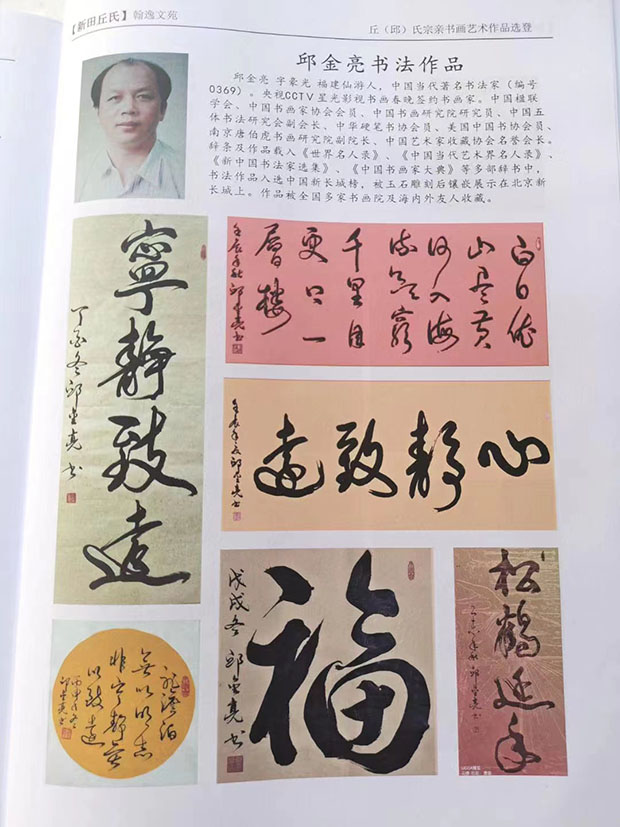 【新田丘氏】翰逸文苑
丘（邱）氏宗亲书画艺术作品选登
邱金亮书法作品
邱金亮 字豪光 福建仙游人，中国当代著名书法家（编号
0369）。央视CCTV星光影视书画春晚签约书画家。中国楹联
学会、中国书画家协会会员、中国书画研究院研究员、中国五
体书法研究会副会长、中华硬笔书协会员、美国中国书协会员、
南京唐伯虎书画研究院副院长、中国艺术家收藏协会名誉会长。
辞条及作品载入《世界名人录》、《中国当代艺术界名人录》、
《新中国书法家选集》、《中国书画家大典》等多部辞书中，
书法作品入选中国新长城榜，被玉石雕刻后镶嵌展示在北京新
长城上。作品被全国多家书画院及海内外友人收藏。
寧靜致遠
丁酉冬邱金亮书
白日依
山尽黄
河入海
流欲穷
千里目
更上一
層楼
壬辰年秋邱金亮书
心静致遠
壬辰年夏邱金亮书
福
戊戌冬邱金亮书
松鶴延年
邱金亮书
非澹泊
無以明志
非宁静無
以致遠
丙申年冬
邱金亮书